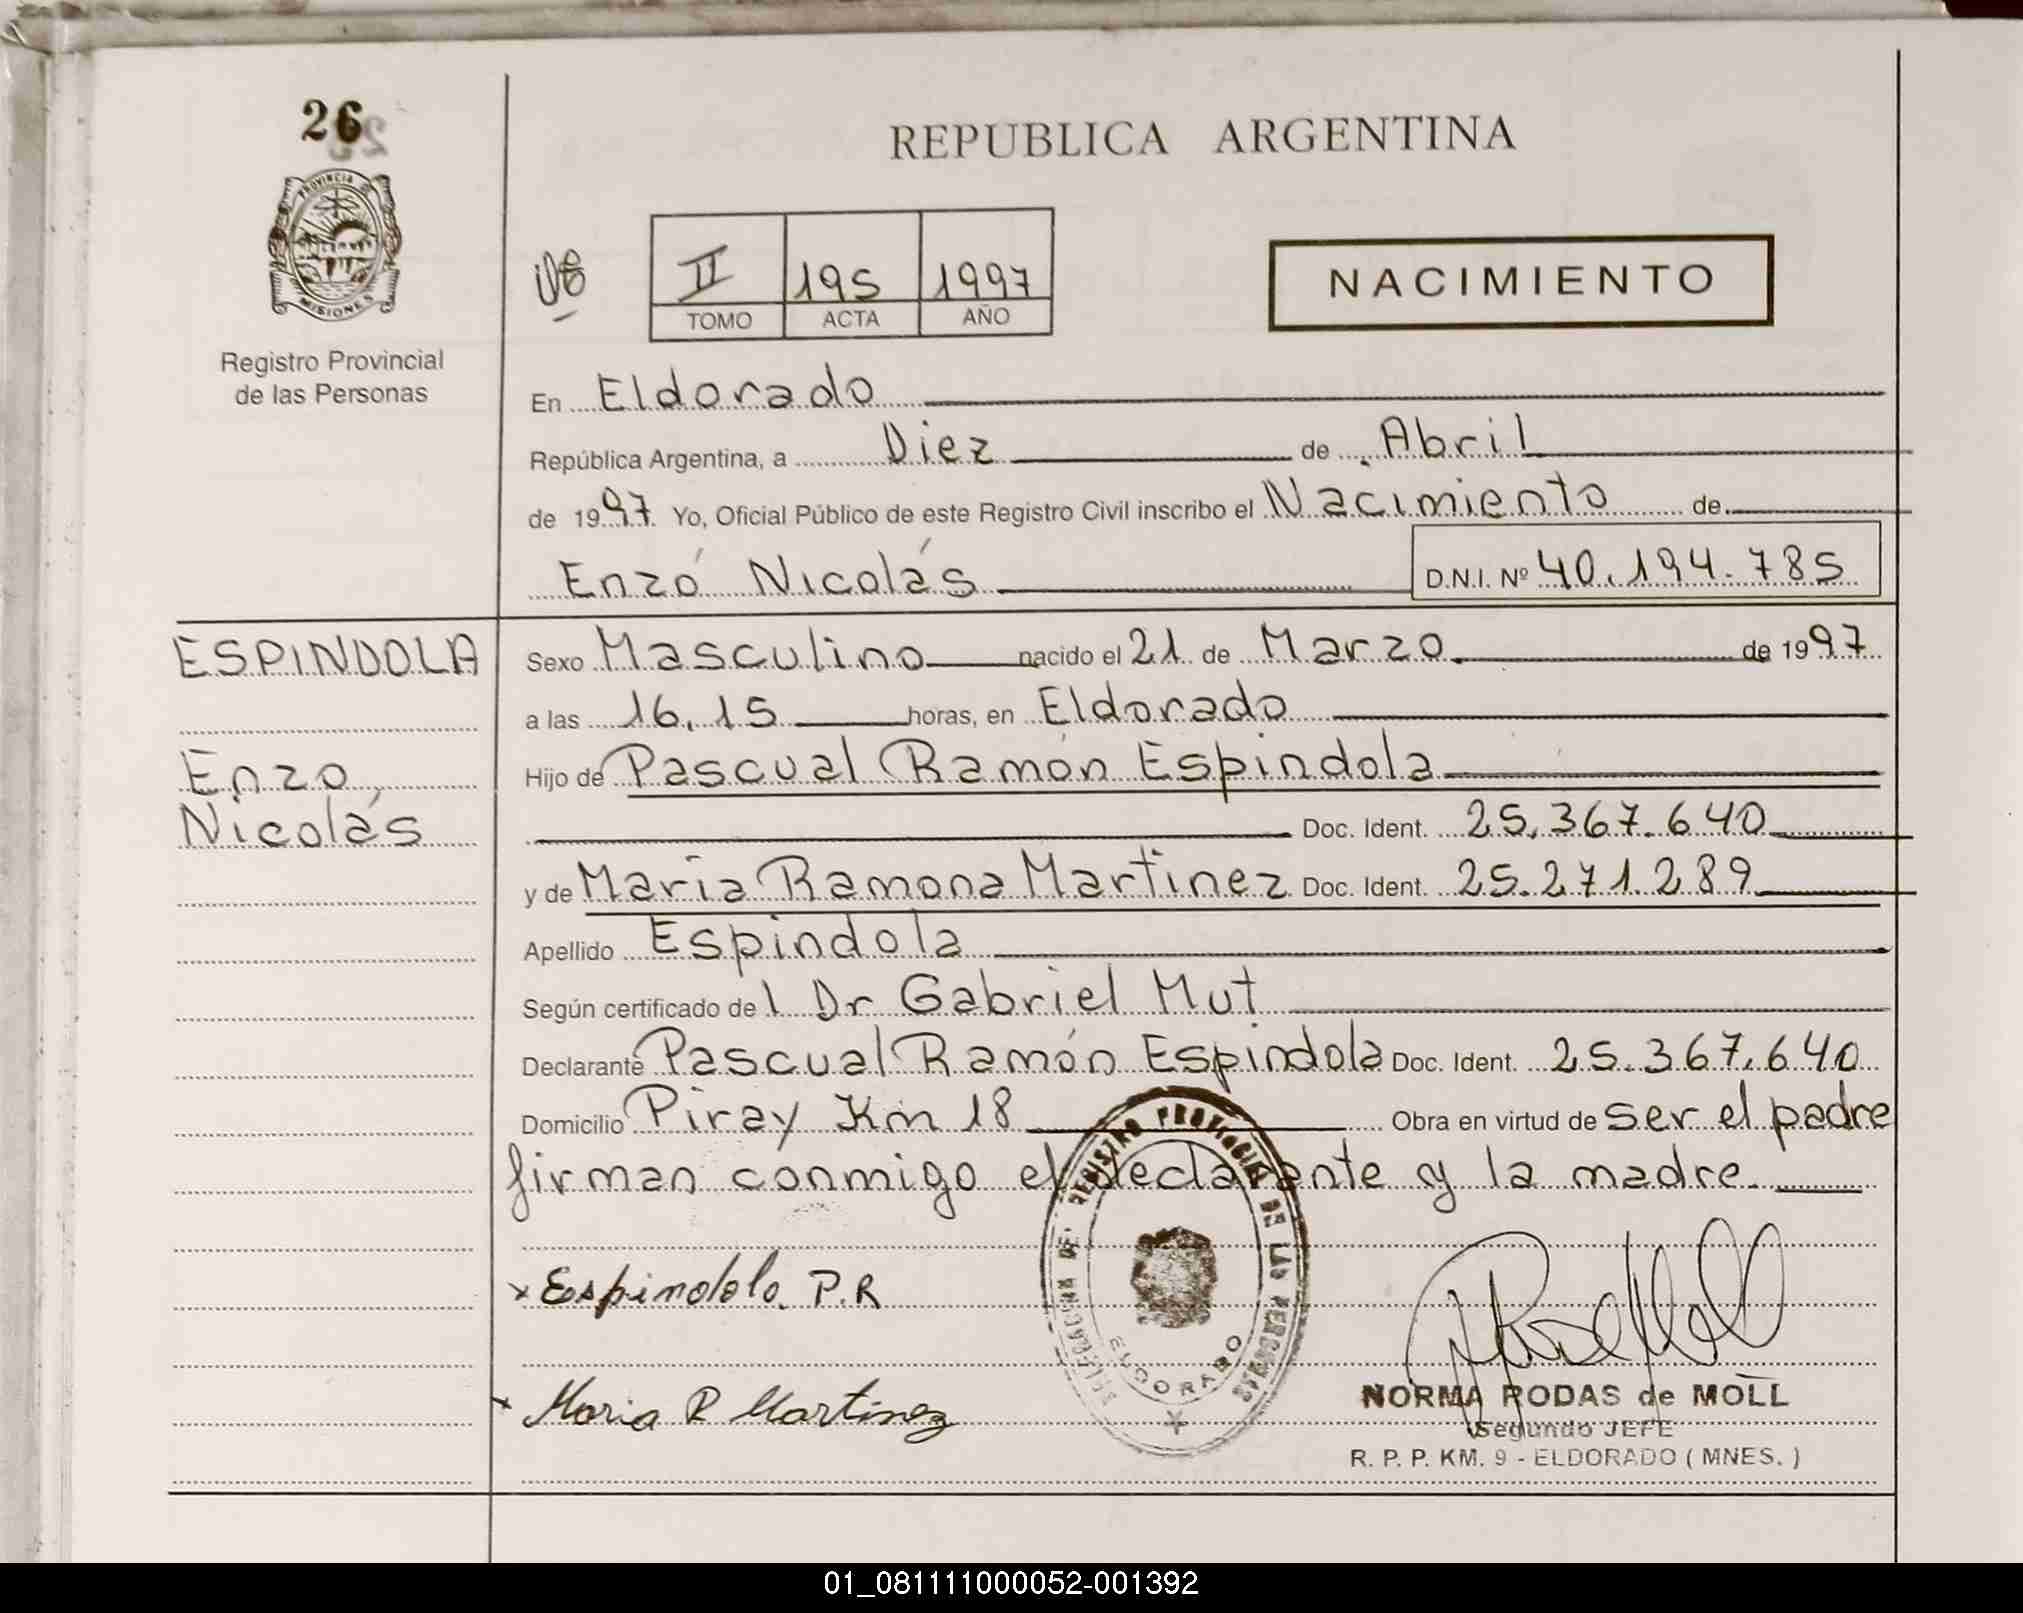 26
PROVINCIA DE
MISIONES
Registro Provincial
de las Personas
REPUBLICA ARGENTINA
II 195 1997
TOMO ACTA AÑO
NACIMIENTO
En Eldorado
República Argentina, a Diez de Abril
de 1997 Yo, Oficial Público de este Registro Civil inscribo el Nacimiento de
Enzo Nicolás D.N.I. Nº 40.194.785
ESPINDOLA
Enzo
Nicolás
Sexo Masculino nacido el 21 de Marzo de 1997
a las 16,15 horas, en Eldorado
Hijo de Pascual Ramón Espindola
Doc. Ident. 25.367.640
y de Maria Ramona Martinez Doc. Ident. 25.271.289
Apellido Espindola
Según certificado de l Dr Gabriel Mut
Declarante Pascual Ramón Espindola Doc. Ident. 25.367.640
Domicilio Piray Km 18 Obra en virtud de ser el padre
firman conmigo el declarante y la madre.
x Espindola. P.R
x Maria R Martinez
REGISTRO PROVINCIAL DE LAS PERSONAS
ELDORADO
NORMA RODAS de MOLL
Segundo JEFE
R. P. P. KM. 9 - ELDORADO ( MNES. )
01_081111000052-001392